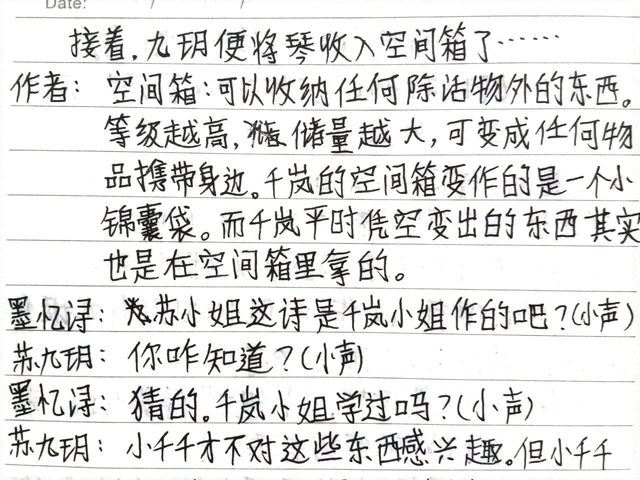 Date: / /
接着，九玥便将琴收入空间箱了……
作者：空间箱：可以收纳任何除活物外的东西。
等级越高，储量越大，可变成任何物
品携带身边。千岚的空间箱变作的是一个小
锦囊袋。而千岚平时凭空变出的东西其实
也是在空间箱里拿的。
墨忆渌：苏小姐这诗是千岚小姐作的吧？(小声)
苏九玥：你咋知道？(小声)
墨忆渌：猜的。千岚小姐学过吗？(小声)
苏九玥：小千千才不对这些东西感兴趣。但小千千